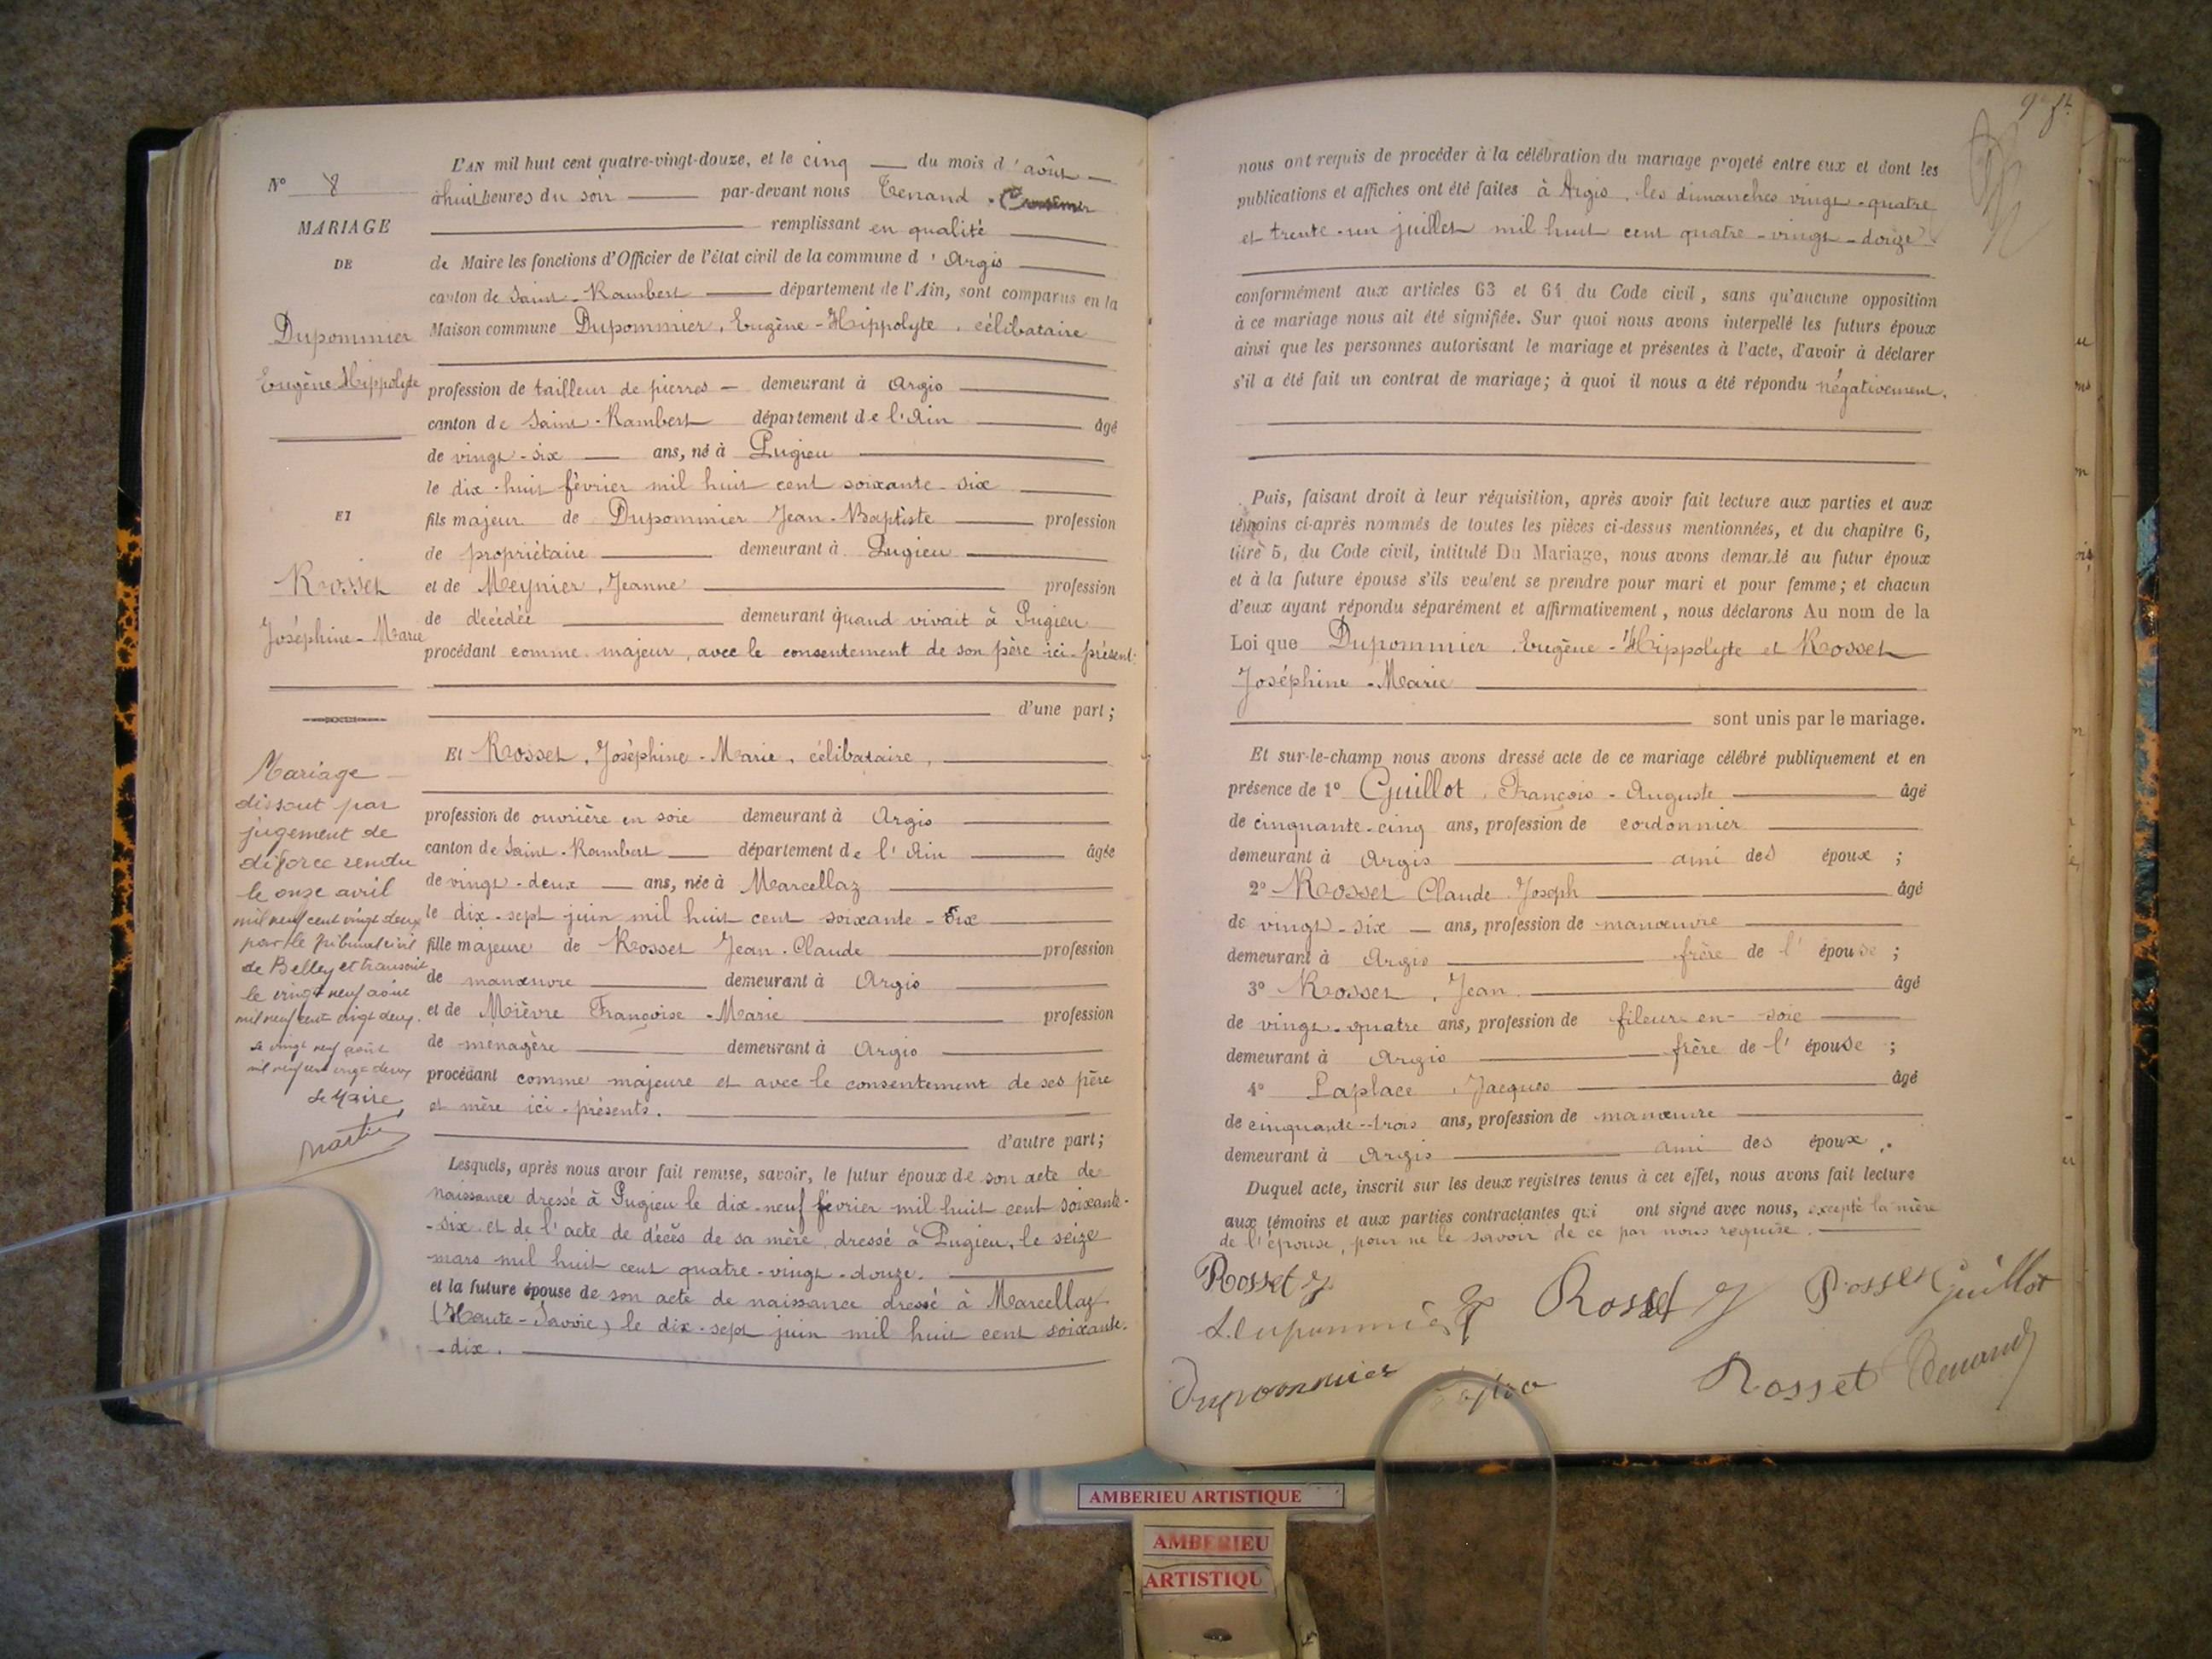 N° 8
MARIAGE
DE
Dupommier
Eugène Hippolyte
ET
Rosset
Joséphine-Marie
Mariage
dissout par
jugement de
divorce rendu
le onze avril
mil neuf cent vingt deux
par le tribunal civil
de Belley et transcrit
le vingt neuf août
mil neuf cent vingt deux.
Le vingt neuf août
mil neuf cent vingt deux
Le Maire,
L'AN mil huit cent quatre-vingt-douze, et le cinq du mois d'août
à huit heures du soir par-devant nous Tenand
remplissant en qualité
de Maire les fonctions d'Officier de l'état civil de la commune d'Argis
canton de Saint-Rambert département de l'Ain, sont comparus en la
Maison commune Dupommier, Eugène-Hippolyte, célibataire
profession de tailleur de pierres demeurant à Argis
canton de Saint-Rambert département de l'Ain âgé
de vingt-six ans, né à Pugieu
le dix-huit février mil huit cent soixante-six
fils majeur de Dupommier Jean-Baptiste profession
de propriétaire demeurant à Pugieu
et de Meynier, Jeanne profession
de décédée demeurant quand vivait à Pugieu
procédant comme majeur, avec le consentement de son père ici-présent.
d'une part;
Et Rosset, Joséphine-Marie, célibataire,
profession de ouvrière en soie demeurant à Argis
canton de Saint-Rambert département de l'Ain âgée
de vingt-deux ans, née à Marcellaz
le dix-sept juin mil huit cent soixante-dix
fille majeure de Rosset Jean-Claude profession
de manœuvre demeurant à Argis
et de Mièvre Françoise-Marie profession
de ménagère demeurant à Argis
procédant comme majeure et avec le consentement de ses père
et mère ici-présents.
d'autre part;
Lesquels, après nous avoir fait remise, savoir, le futur époux de son acte de
naissance dressé à Pugieu le dix-neuf février mil huit cent soixante-
-six et de l'acte de décès de sa mère, dressé à Pugieu, le seize
mars mil huit cent quatre-vingt-douze.
et la future épouse de son acte de naissance dressé à Marcellaz
(Haute-Savoie) le dix-sept juin mil huit cent soixante-
-dix.
nous ont requis de procéder à la célébration du mariage projeté entre eux et dont les
publications et affiches ont été faites à Argis, les dimanches vingt-quatre
et trente-un juillet mil huit cent quatre-vingt-douze
conformément aux articles 63 et 64 du Code civil, sans qu'aucune opposition
à ce mariage nous ait été signifiée. Sur quoi nous avons interpellé les futurs époux
ainsi que les personnes autorisant le mariage et présentes à l'acte, d'avoir à déclarer
s'il a été fait un contrat de mariage; à quoi il nous a été répondu négativement.
Puis, faisant droit à leur réquisition, après avoir fait lecture aux parties et aux
témoins ci-après nommés de toutes les pièces ci-dessus mentionnées, et du chapitre 6,
titre 5, du Code civil, intitulé Du Mariage, nous avons demandé au futur époux
et à la future épouse s'ils veulent se prendre pour mari et pour femme; et chacun
d'eux ayant répondu séparément et affirmativement, nous déclarons Au nom de la
Loi que Dupommier, Eugène-Hippolyte et Rosset
Joséphine-Marie
sont unis par le mariage.
Et sur-le-champ nous avons dressé acte de ce mariage célébré publiquement et en
présence de 1° Guillot, François-Auguste âgé
de cinquante-cinq ans, profession de cordonnier
demeurant à Argis ami des époux;
2° Rosset Claude Joseph âgé
de vingt-six ans, profession de manœuvre
demeurant à Argis frère de l'épouse;
3° Rosset, Jean âgé
de vingt-quatre ans, profession de fileur en soie
demeurant à Argis frère de l'épouse;
4° Laplace, Jacques âgé
de cinquante-trois ans, profession de manœuvre
demeurant à Argis ami des époux.
Duquel acte, inscrit sur les deux registres tenus à cet effet, nous avons fait lecture
aux témoins et aux parties contractantes qui ont signé avec nous, excepté la mère
de l'épouse, pour ne le savoir de ce par nous requise.
Rosset J
Rosset J
Rosset Guillot
Dupommier
Rosset Tenand
AMBERIEU ARTISTIQUE
AMBERIEU
ARTISTIQU